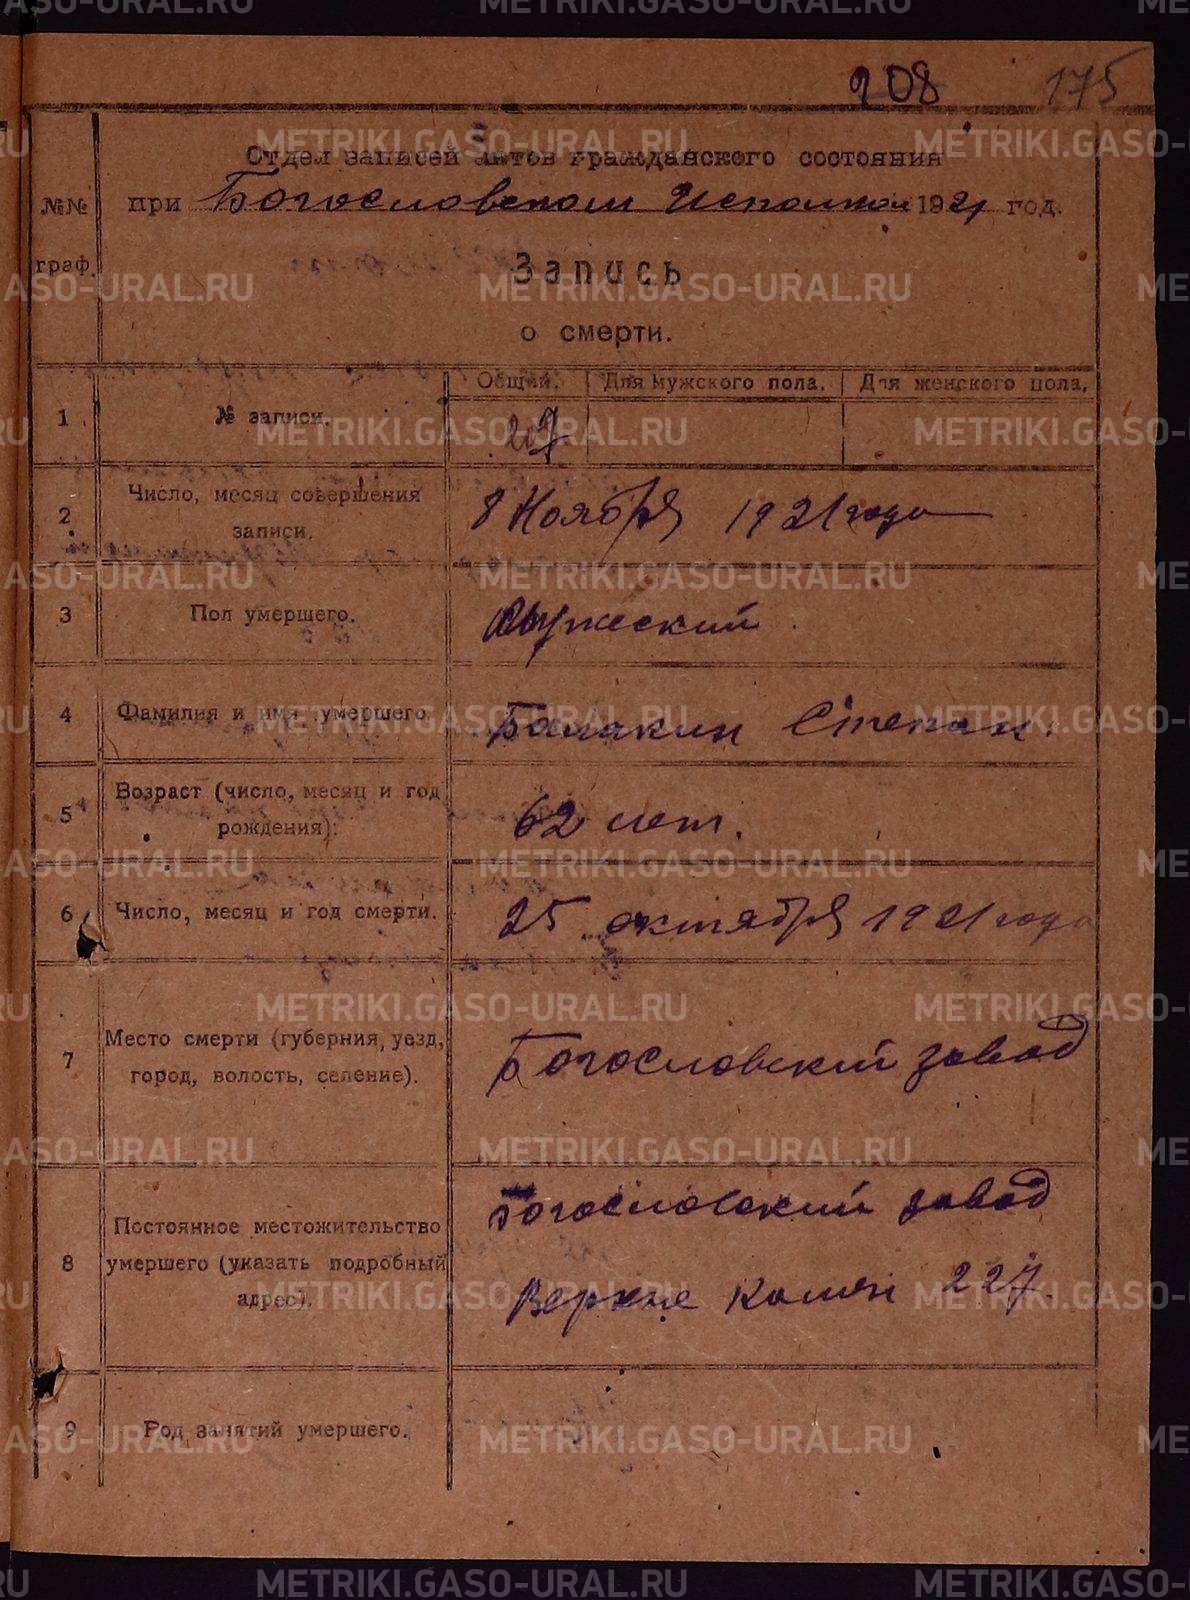 208 175
Отдел записей актов гражданского состояния
при Богословском Исполком 1921 год.
№№
граф.
Запись
о смерти.
Общий. Для мужского пола. Для женского пола.
1 № записи. 207
2 Число, месяц совершения
записи.
8 Ноября 1921 года
3 Пол умершего. Мужеский
4 Фамилия и имя умершего. Балакин Степан.
5 Возраст (число, месяц и год
рождения):
62 лет.
6 Число, месяц и год смерти. 25 октября 1921 года
7 Место смерти (губерния, уезд,
город, волость, селение).
Богословский завод
8 Постоянное местожительство
умершего (указать подробный
адрес).
Богословский завод
Верхне 227.
9 Род занятий умершего.
METRIKI.GASO-URAL.RU